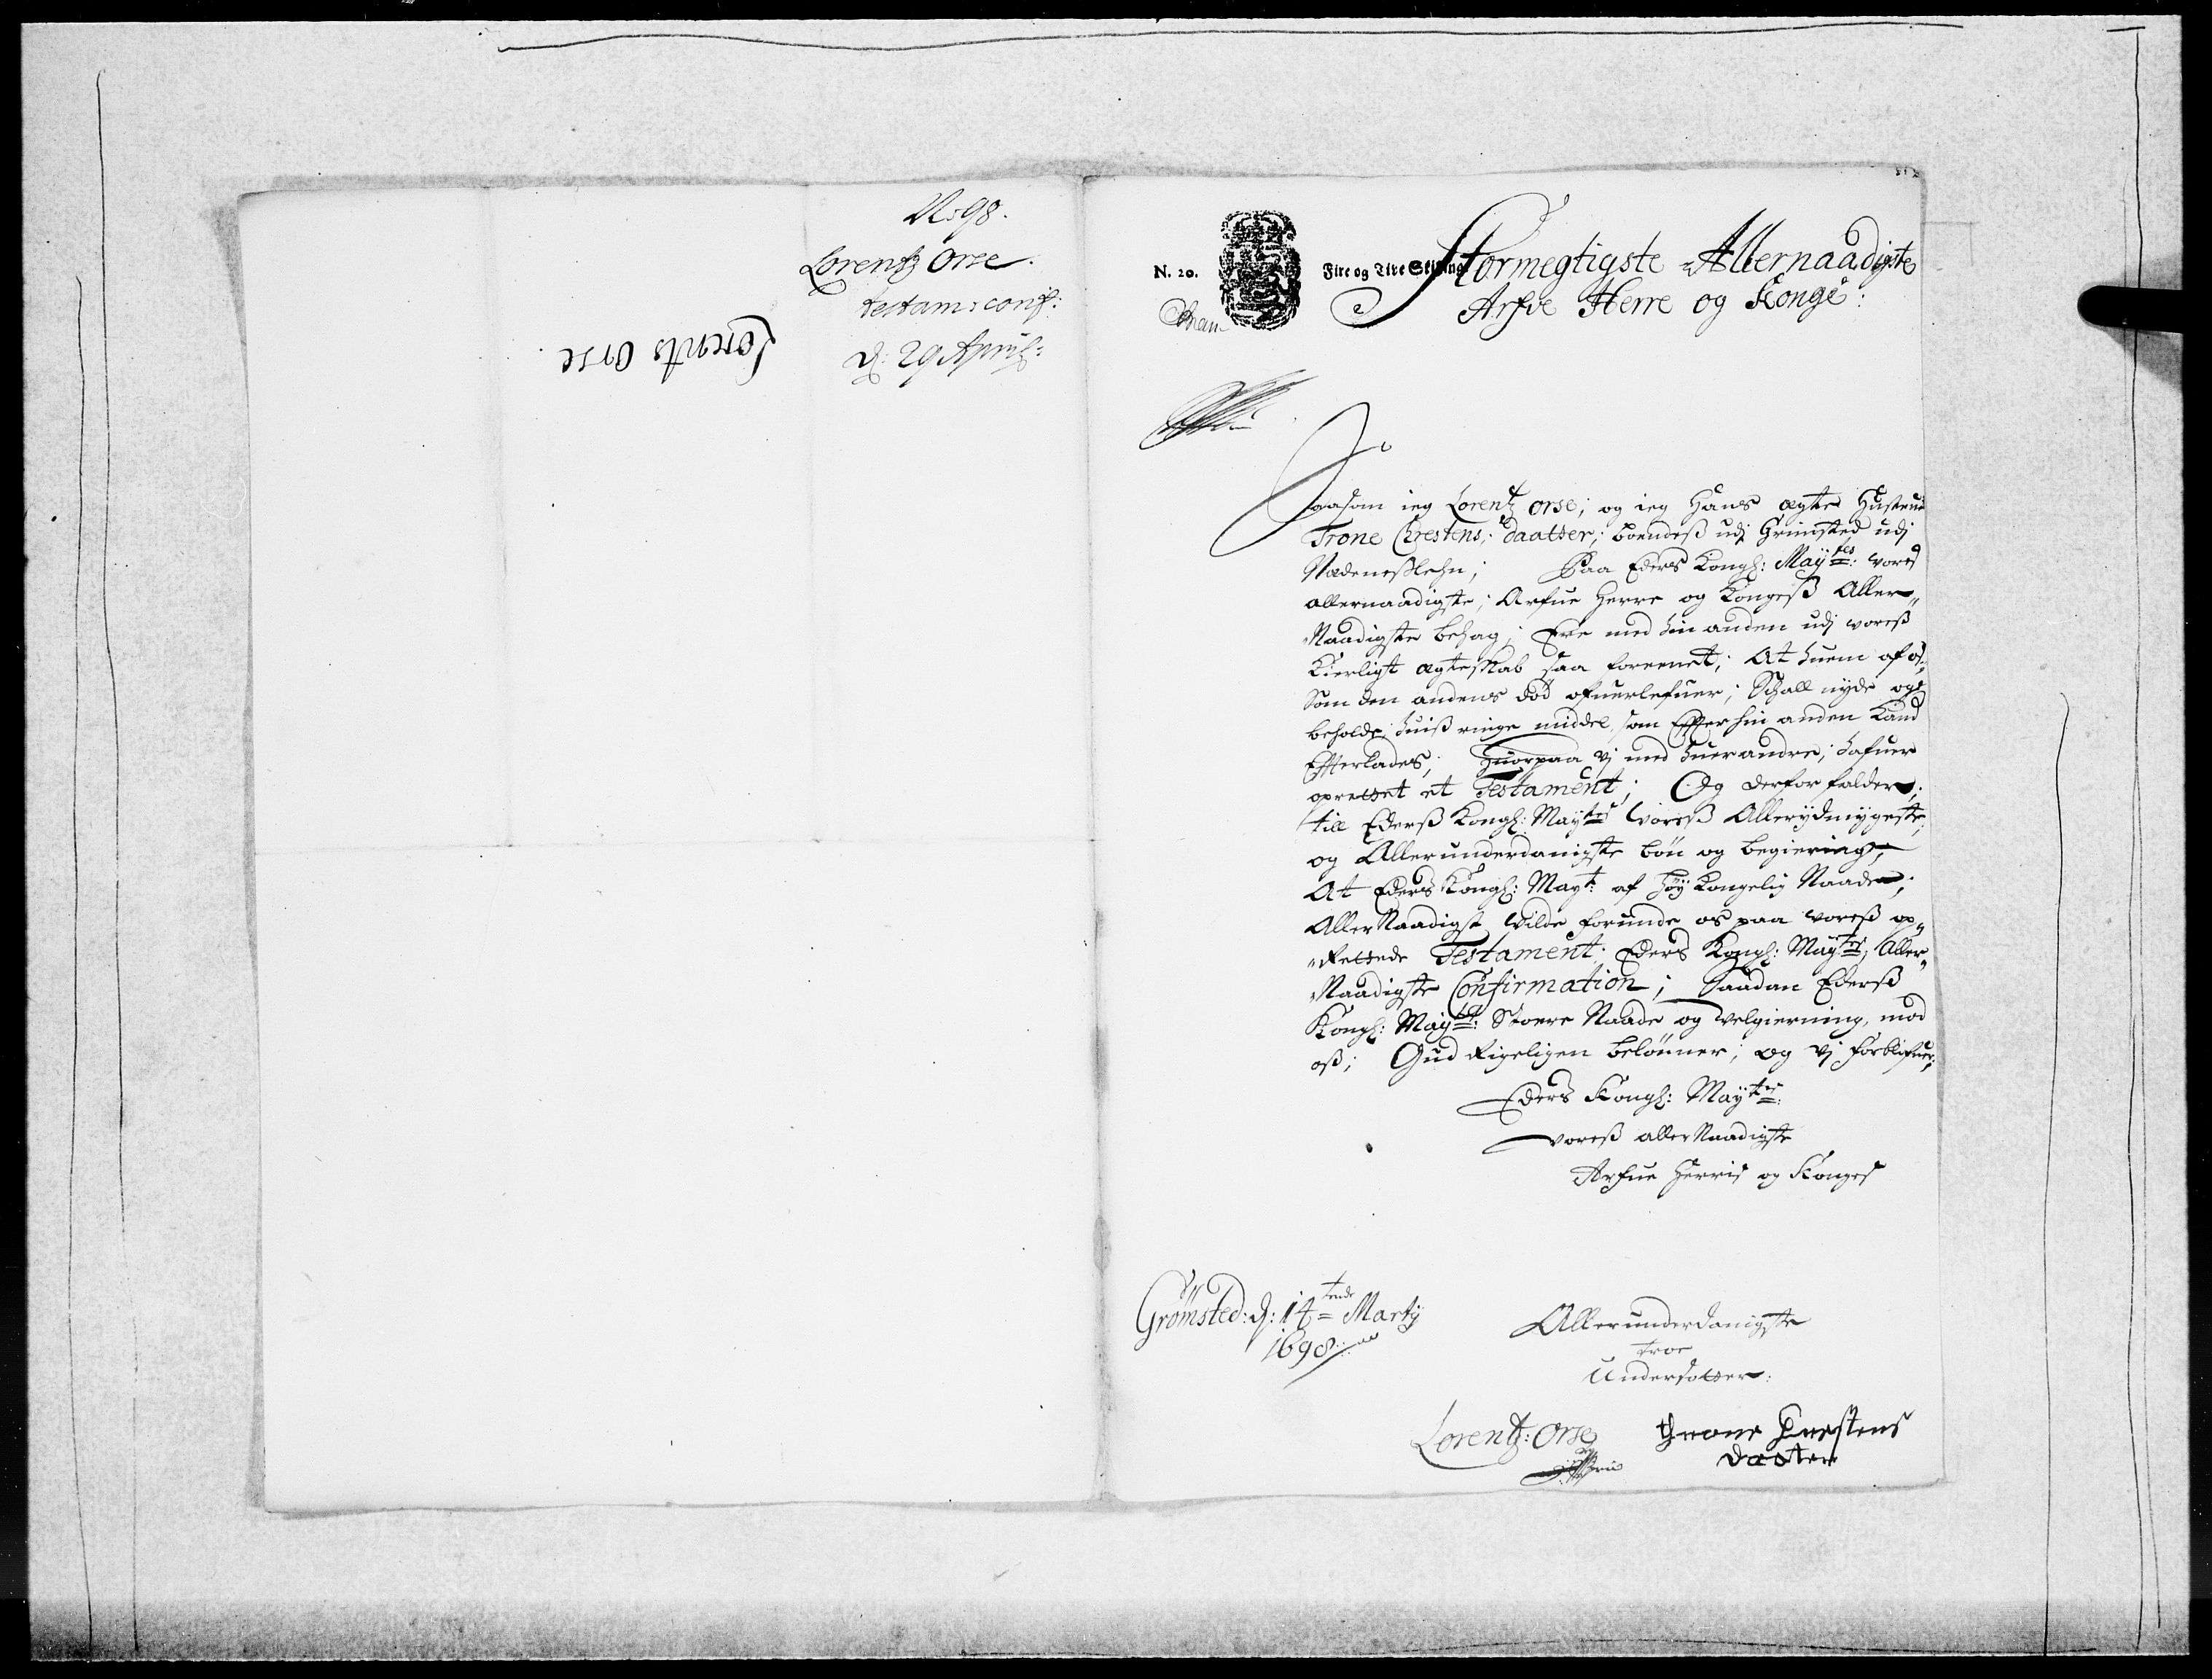 N: 98.
Lorentz Orse.
testam: conf:
d: 29 April:
Lorentz Orse
N. 20.
Fire og Tive Skilling
Stormegtigste Allernaadigste
Arfve Herre og Konge:
Saasom ieg Lorentz orse; og ieg Hans ægte Hustrue
Trone Chrestens; daatter; boendeß udj Grimsted udj
Nedeneßlehn; Paa Eders Kongl: Mayᵗᵉˢ: vores
allernaadigste; Arfue Herre og Kongeß Aller„
Naadigste behag; Ere med hin anden udj voreß
Kierligt ægteskab saa foreenet; At huem af oß
Som den andens død ofuerlefuer; Schall nyde og
beholde, huiß ringe middel som Effter hin anden Kand
Effterlades; Huorpaa vj med huerandre; hafuer
oprettet et Testament; Og derfor falder;
till Ederß Kongl: Mayᵗᵉˢ Voreß Allerydmygeste;
og Allerunderdanigste bøn og begiering;
At Eders Kongl: Mayᵗ: af høy Kongelig Naade;
AllerNaadigst Wilde forunde os paa voreß op„
„Rettede Testament; Eders Kongl: Mayᵗᵉˢ; Aller„
Naadigste Confirmation; Saadan Ederß
Kongl: Mayᵗᵉˢ: Stoere Naade og velgierning, mod
oß; Gud Rigeligen belønner; og vj forblifuer;
Eders Kongl: Mayᵗᵉˢ:
voreß allerNaadigste
Arfue Herris og Konges
Grømsted: d: 14ᵗᵉⁿᵈᵉ Marty
1698:
Allerunderdanigste
troe
Undersotter:
Lorentz: Orse
throne Chrestens
daater